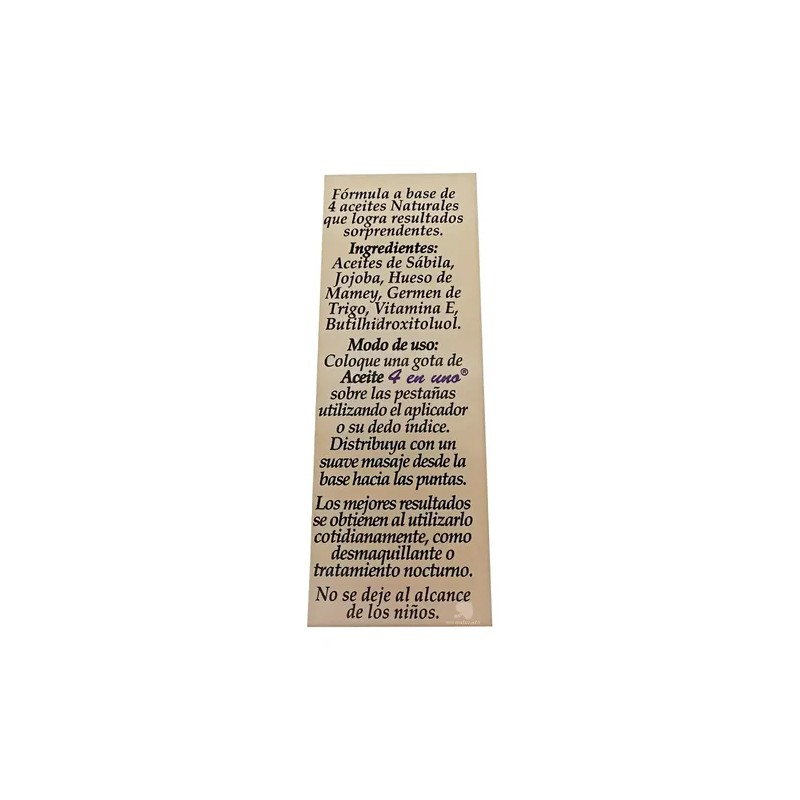 Fórmula a base de
4 aceites Naturales
que logra resultados
sorprendentes.
Ingredientes:
Aceites de Sábila,
Jojoba, Hueso de
Mamey, Germen de
Trigo, Vitamina E,
Butilhidroxitoluol.
Modo de uso:
Coloque una gota de
Aceite 4 en uno®
sobre las pestañas
utilizando el aplicador
o su dedo índice.
Distribuya con un
suave masaje desde la
base hacia las puntas.
Los mejores resultados
se obtienen al utilizarlo
cotidianamente, como
desmaquillante o
tratamiento nocturno.
No se deje al alcance
de los niños.